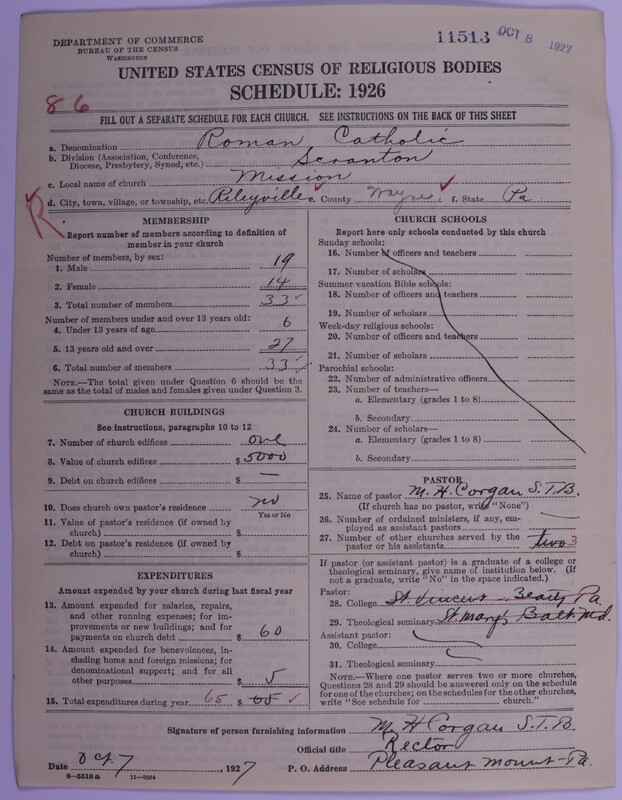 DEPARTMENT OF COMMERCE
BUREAU OF THE CENSUS
WASHINGTON
11513 OCT 8 1927
UNITED STATES CENSUS OF RELIGIOUS BODIES
SCHEDULE: 1926
86
FILL OUT A SEPARATE SCHEDULE FOR EACH CHURCH. SEE INSTRUCTIONS ON THE BACK OF THIS SHEET
a. Denomination Roman Catholic
b. Division (Association, Conference, Diocese, Presbytery, Synod, etc.) Scranton
c. Local name of church Mission
d. City, town, village, or township, etc. Rileyville e. County Wayne f. State Pa
R
MEMBERSHIP
Report number of members according to definition of
member in your church
Number of members, by sex:
1. Male 19
2. Female 14
3. Total number of members 33
Number of members under and over 13 years old:
4. Under 13 years of age 6
5. 13 years old and over 27
6. Total number of members 33
NOTE.—The total given under Question 6 should be the
same as the total of males and females given under Question 3.
CHURCH BUILDINGS
See instructions, paragraphs 10 to 12
7. Number of church edifices one
8. Value of church edifices $ 5000
9. Debt on church edifices $ —
10. Does church own pastor's residence no
Yes or No
11. Value of pastor's residence (if owned by
church) $
12. Debt on pastor's residence (if owned by
church) $
EXPENDITURES
Amount expended by your church during last fiscal year
13. Amount expended for salaries, repairs,
and other running expenses; for im-
provements or new buildings; and for
payments on church debt $ 60
14. Amount expended for benevolences, in-
cluding home and foreign missions; for
denominational support; and for all
other purposes $ 5
15. Total expenditures during year 65 $ 65
CHURCH SCHOOLS
Report here only schools conducted by this church
Sunday schools:
16. Number of officers and teachers
17. Number of scholars
Summer vacation Bible schools:
18. Number of officers and teachers
19. Number of scholars
Week-day religious schools:
20. Number of officers and teachers
21. Number of scholars
Parochial schools:
22. Number of administrative officers
23. Number of teachers—
a. Elementary (grades 1 to 8)
b. Secondary
24. Number of scholars—
a. Elementary (grades 1 to 8)
b. Secondary
PASTOR
25. Name of pastor M. H. Corgan S.T.B.
(If church has no pastor, write "None")
26. Number of ordained ministers, if any, em-
ployed as assistant pastors —
27. Number of other churches served by the
pastor or his assistants two 3
If pastor (or assistant pastor) is a graduate of a college or
theological seminary, give name of institution below. (If
not a graduate, write "No" in the space indicated.)
Pastor:
28. College St. Vincent — Beatty Pa.
29. Theological seminary St Mary's Balt. Md.
Assistant pastor:
30. College
31. Theological seminary
NOTE.—Where one pastor serves two or more churches,
Questions 28 and 29 should be answered only on the schedule
for one of the churches; on the schedules for the other churches,
write "See schedule for church."
Signature of person furnishing information M. H Corgan S.T.B.
Official title Rector
Date Oct 7, 1927 P. O. Address Pleasant Mount—Pa.
6—5518a 11—9034